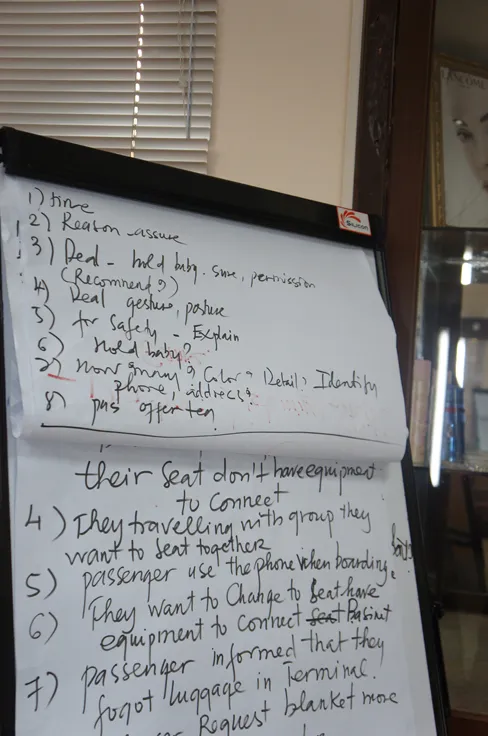 1) time
2) Reason - assure
3) Deal - hold baby. sure, permission
(Recommend?)
4) Deal gesture, posture
5) for Safety - Explain
6) Hold baby?
7) How many? Color? Detail? Identify
phone, address?
8) pas offer tea
their Seat don't have equipment
to Connect
4) They travelling with group they
want to Seat together
5) passenger use the phone when boarding.
6) They want to Change to Seat have
equipment to connect Seat Basint
7) passenger informed that they
fogot luggage in Terminal.
Request blanket more
Silicon
LANCOME